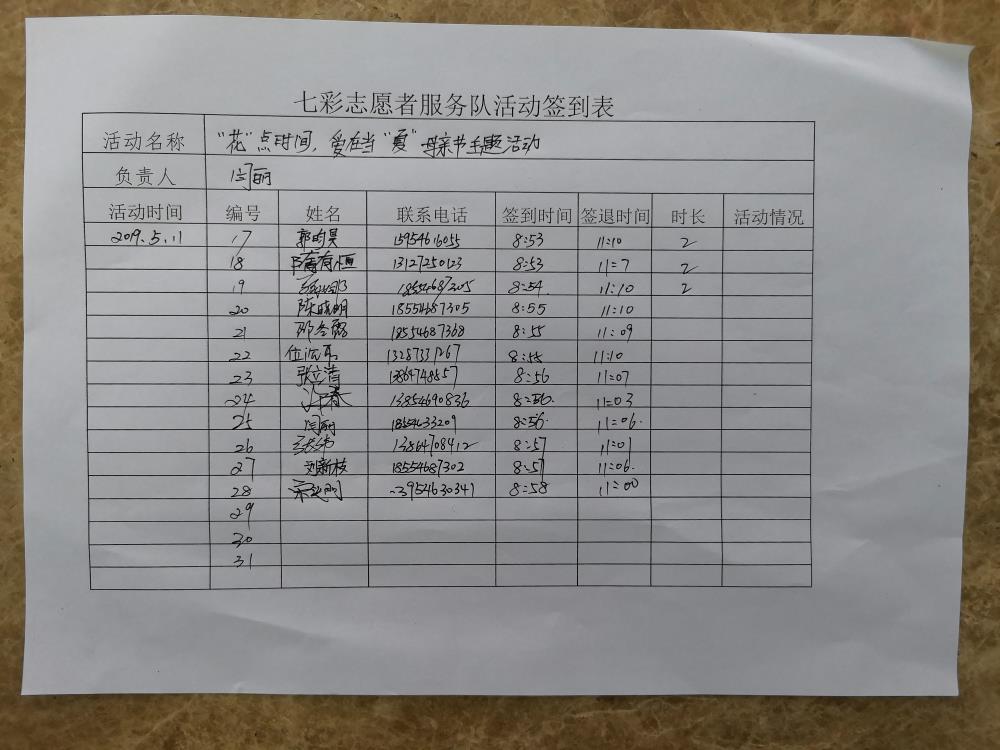 七彩志愿者服务队活动签到表
活动名称 "花"点时间，爱在当"夏"母亲节主题活动
负责人 闫丽
活动时间 编号 姓名 联系电话 签到时间 签退时间 时长 活动情况
2019.5.11 17 郭昀昊 15954616055 8:53 11:10 2
18 13127250123 8:53 11:7 2
19 18554687205 8:54 11:10 2
20 陈晓明 18554687305 8:55 11:10
21 18554687368 8:55 11:09
22 13287331267 8:55 11:10
23 张立清 13864748857 8:56 11:07
24 13854690836 8:56 11:03
25 闫丽 18554633209 8:56 11:06
26 13864708412 8:57 11:01
27 刘新枝 18554687302 8:57 11:06
28 13954630341 8:58 11:00
29
30
31